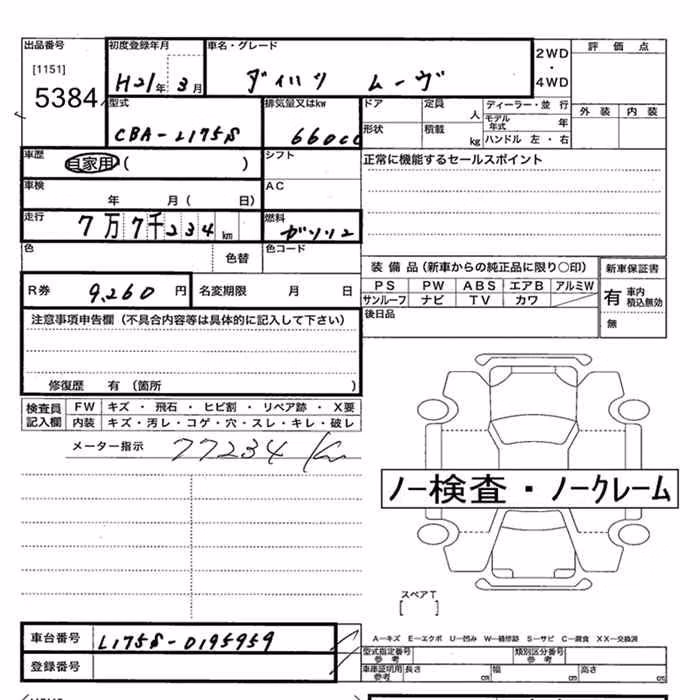 出品番号 初度登録年月 車名・グレード 2WD・4WD 評価点
[1151]
5384 H21年3月 ダイハツ ムーヴ
型式 排気量又はkw ドア 定員 人 ディーラー・並行 外装 内装
モデル年式 年
CBA-L175S 660cc 形状 積載 kg ハンドル 左・右
車歴 自家用 ( ) シフト 正常に機能するセールスポイント
車検 年 月( 日) AC
走行 7万7千234km 燃料 ガソリン
色 色替 色コード
装備品(新車からの純正品に限り○印) 新車保証書
R券 9,260円 名変期限 月 日 PS PW ABS エアB アルミW 有 車内積込無効
サンルーフ ナビ TV カワ
注意事項申告欄(不具合内容等は具体的に記入して下さい) 後日品 無
修復歴 有(箇所 )
検査員記入欄 FW キズ・飛石・ヒビ割・リペア跡・X要
内装 キズ・汚レ・コゲ・穴・スレ・キレ・破レ
メーター指示 77234 Km
ノー検査・ノークレーム
スペアT
[ ]
車台番号 L175S-0195959 A-キズ E-エクボ U-凹み W-補修跡 S-サビ C-腐食 XX-交換済
型式指定番号 参考 類別区分番号 参考
登録番号 車庫証明用 参考 長さ cm 幅 cm 高さ cm